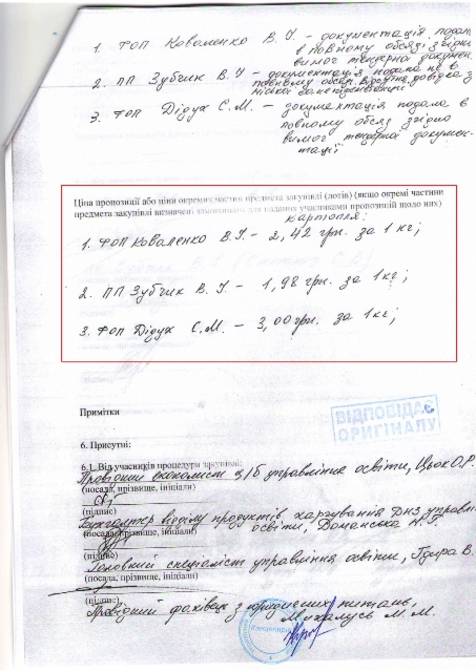 1. ФОП Коваленко В. У. – документація подана
в повному обсязі згідно
вимог тендерної докумен.
2. ПП Зубчик В. У – документація подана не в
повному обсязі відсутня довідка з
3. ФОП Дідух С.М. – документація подала в
повному обсязі згідно
вимог тендерної докумен-
тації
Ціна пропозиції або ціни окремих частин предмета закупівлі (лотів) (якщо окремі частини
предмета закупівлі визначені замовником для надання учасниками пропозицій щодо них)
картопля:
1. ФОП Коваленко В. У. – 2,42 грн. за 1 кг;
2. ПП Зубчик В. У. – 1,98 грн. за 1 кг;
3. ФОП Дідух С.М. – 3,00 грн. за 1 кг;
Примітки
ВІДПОВІДАЄ
ОРИГІНАЛУ
6. Присутні:
6.1. Від учасників процедури закупівлі:
Провідний економіст ц/б управління освіти, Цьок О.Р.
(посада, прізвище, ініціали)
(підпис)
Бухгалтер відділу продуктів харчування ДНЗ управлін
освіти, Доманська Н.
(посада, прізвище, ініціали)
(підпис)
Головний спеціаліст управління освіти, В.
(посада, прізвище, ініціали)
(підпис)
Провідний фахівець з юридичних питань,
Михалусь М. М.